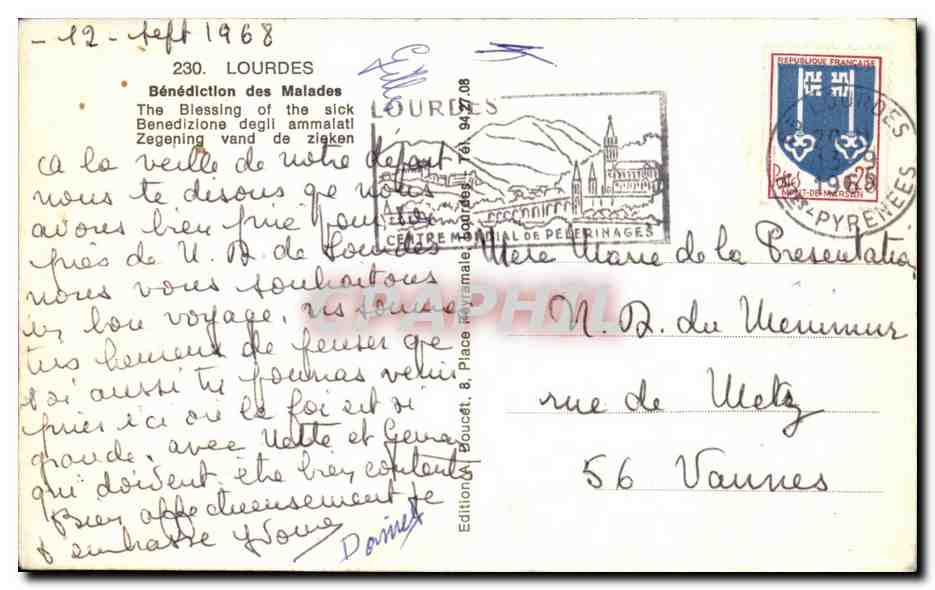 - 12 - sept 1968
230. LOURDES
Bénédiction des Malades
The Blessing of the sick
Benedizione degli ammalati
Zegening vand de zieken
ça la veille de notre départ
nous te disons qe nous
avons bien prié pour toi
près de N. D. de Lourdes
nous vous souhaitons
bon voyage, ns sommes
très heureux de penser qe
toi aussi tu pourras venir
prier ici où la foi est si
grande, avec Nette et
qui doivent être bien contents
Bien affectueusement je
t'embrasse Yvonne
Edition A. Doucet, 8, Place Peyramale, Lourdes, Tél. 94.27.08
LOURDES
CENTRE MONDIAL DE PELERINAGES
REPUBLIQUE FRANÇAISE
0,25
MONT-DE-MARSAN
LOURDES
13-9
1968
HTES-PYRENEES
Mère Marie de la Présentation
N. D. du Ménimur
rue de Metz
56 Vannes
CPAPHIL